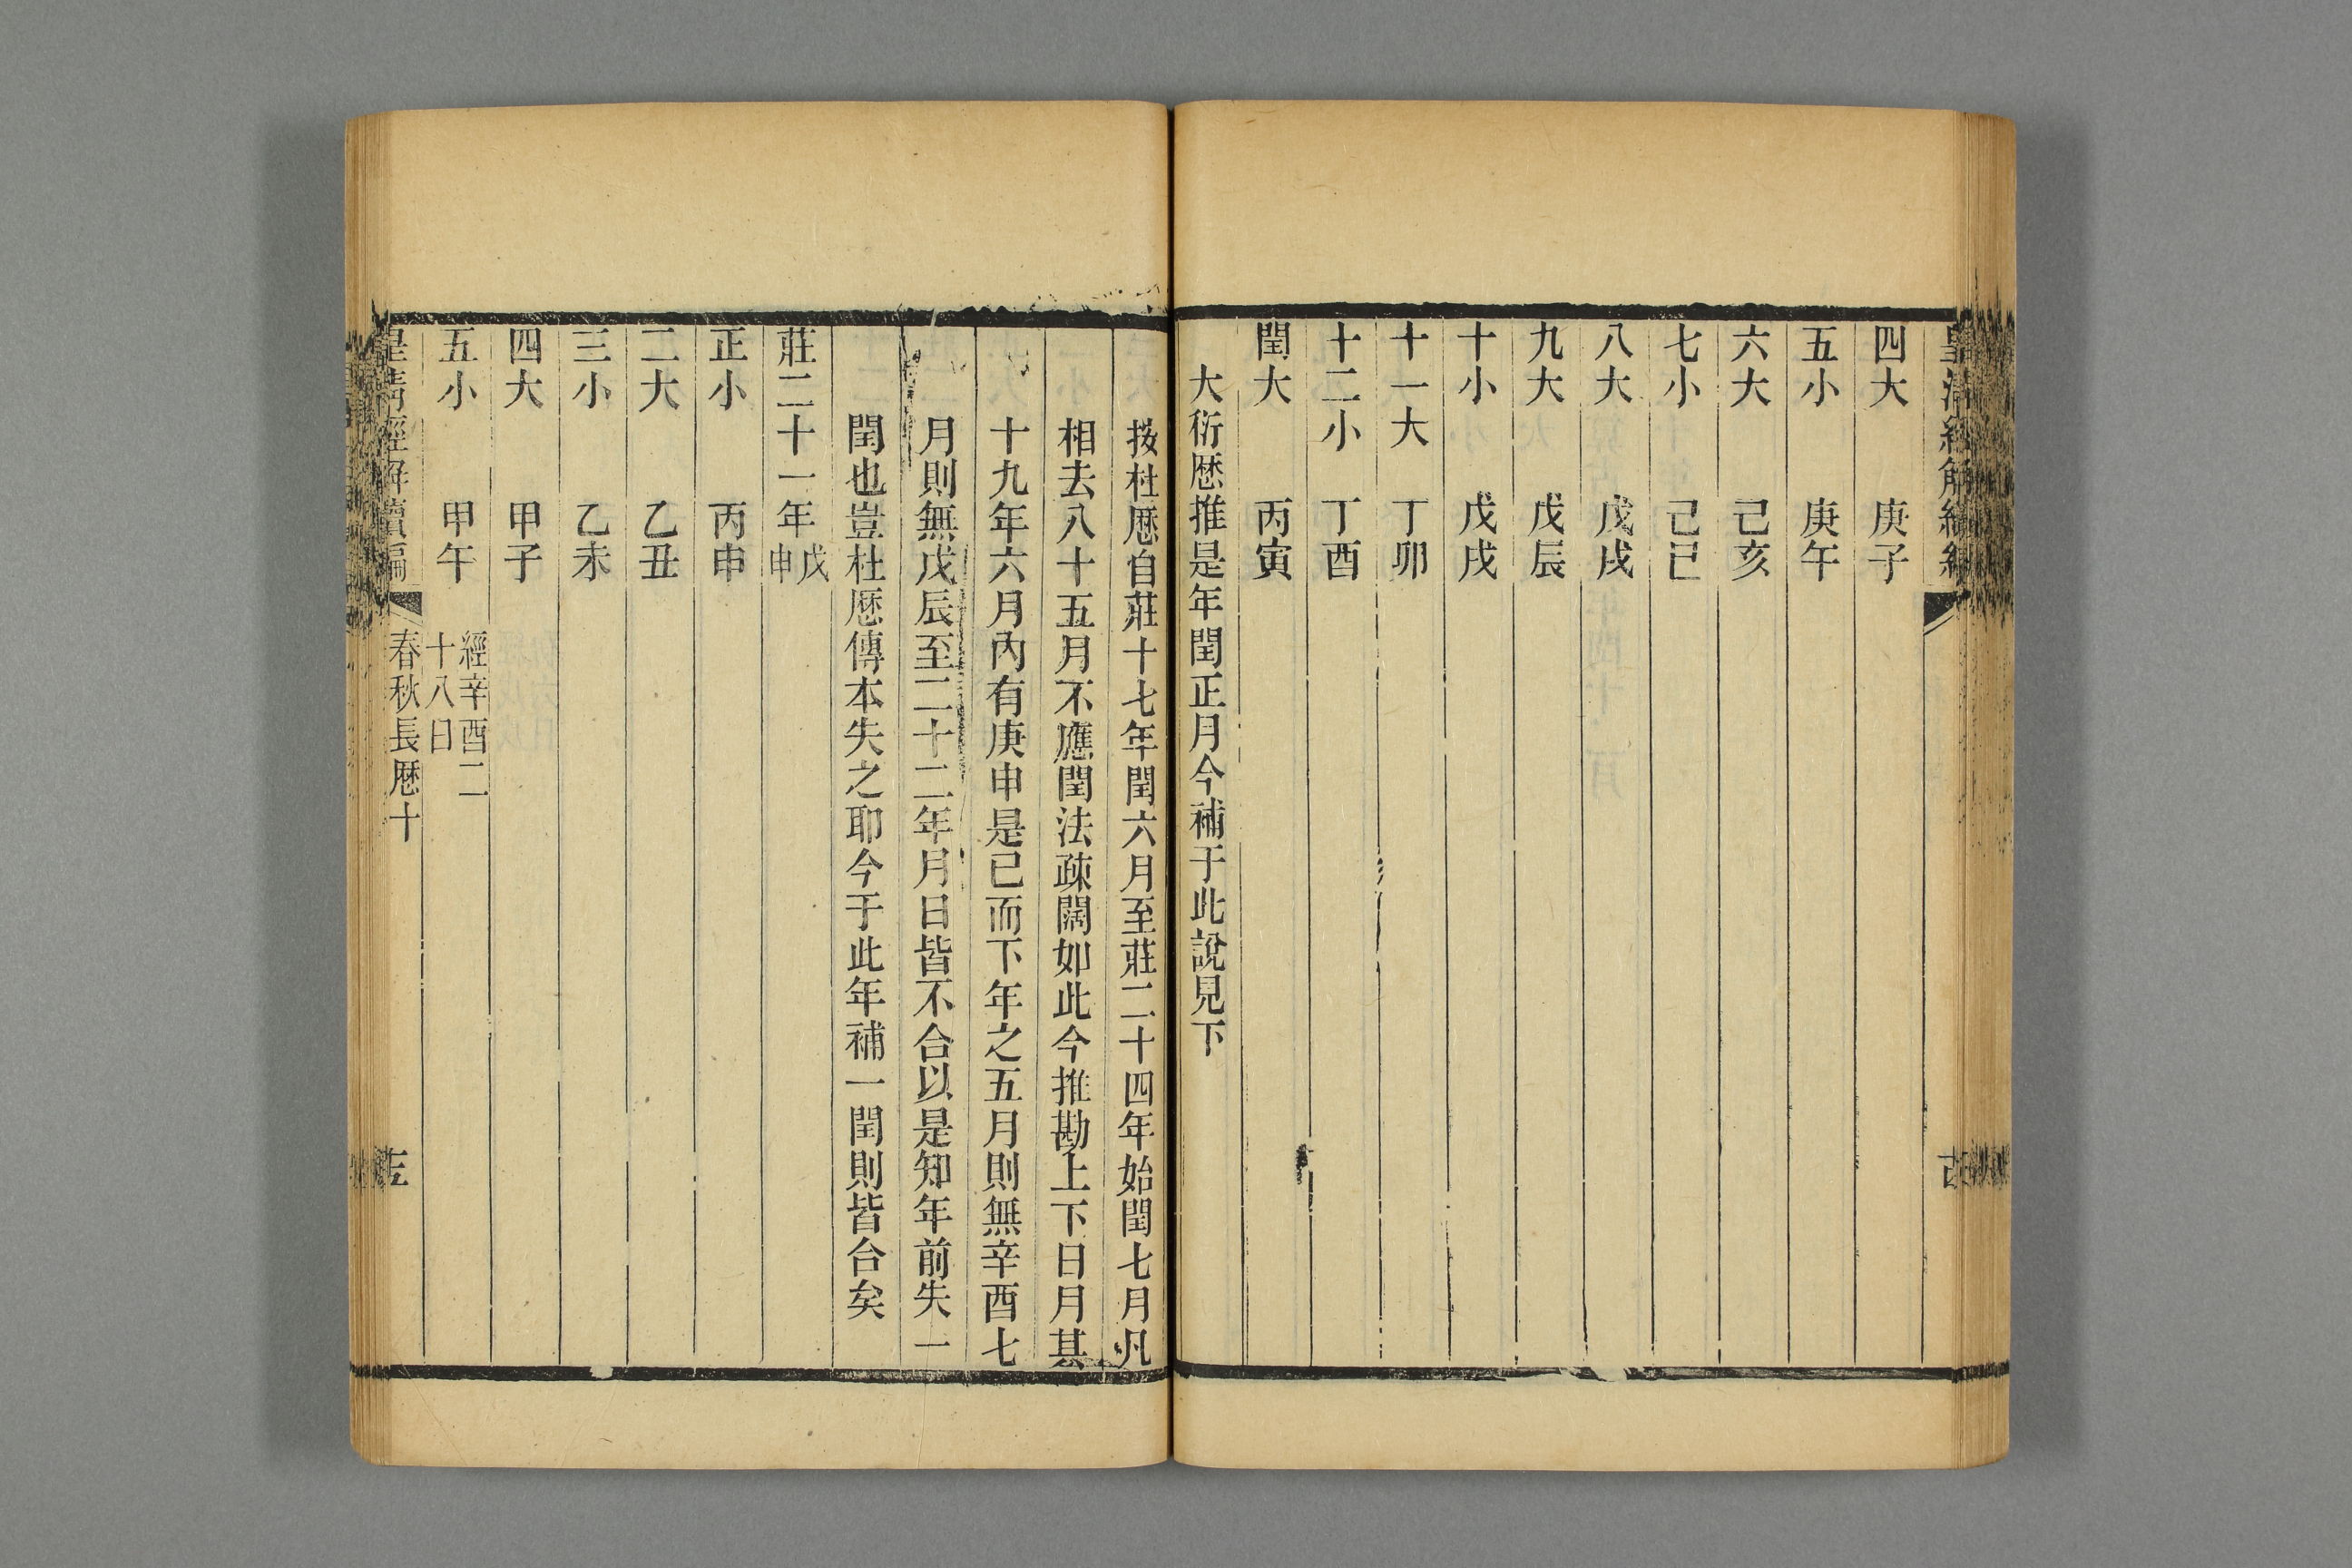 四大 庚子
五小 庚午
六大 己亥
七小 己巳
八大 戊戌
九大 戊辰
十小 戊戌
十一大 丁卯
十二小 丁酉
閏大 丙寅
大衍厯推是年閏正月今補于此說見下
按杜厯自莊十七年閏六月至莊二十四年始閏七月凡
相去八十五月不應閏法疎闊如此今推勘上下日月甚
十九年六月內有庚申是已而下年之五月則無辛酉七
月則無戊辰至二十二年月日皆不合以是知年前失一
閏也豈杜厯傳本失之耶今于此年補一閏則皆合矣
莊二十一年戊申
正小 丙申
二大 乙丑
三小 乙未
四大 甲子
五小 甲午 經辛酉二十八日
皇清經解續編 春秋長厯十